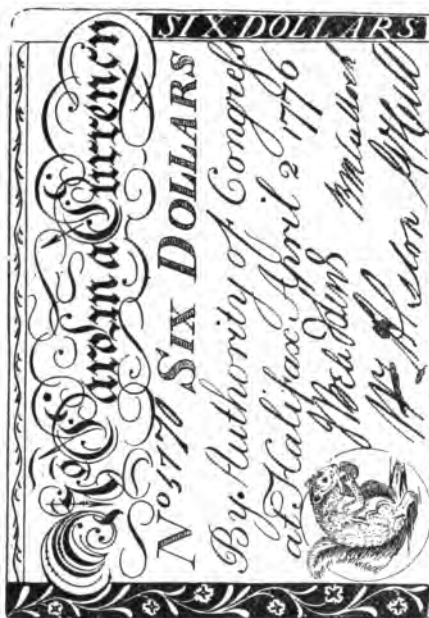 SIX DOLLARS
No. Carolina Currency
No 5170 SIX DOLLARS
By Authority of Congress
at Halifax April 2 1776